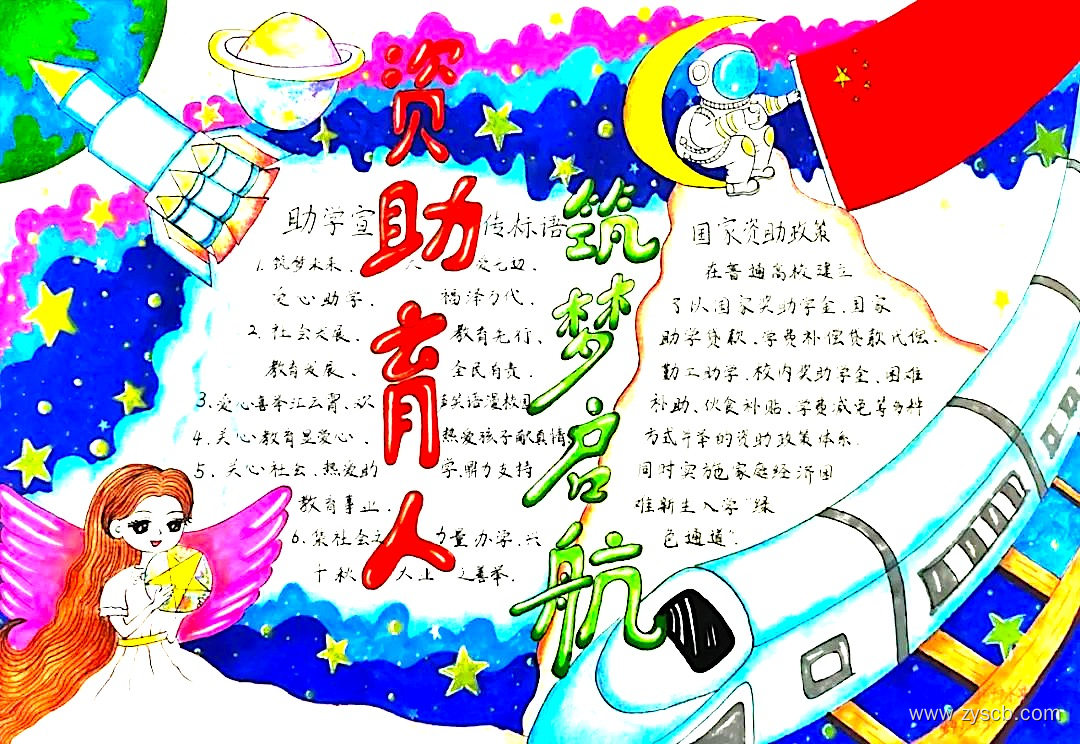 资助育人
筑梦启航
助学宣传标语
1. 筑梦未来、爱无边、
爱心助学、福泽万代、
2. 社会发展、教育先行、
教育发展、全民自责、
3、爱心喜泽江云霄、欢笑语漫校园
4、关心教育显爱心、热爱孩子献真情
5、关心社会、热爱助学、鼎力支持
教育事业、
6. 集社会力量办学、兴
千秋人上之善举.
国家资助政策
在普通高校建立
了从国家奖助学金、国家
助学贷款、学费补偿贷款代偿、
勤工助学、校内奖助学金、困难
补助、伙食补贴、学费减免等多种
方式并举的资助政策体系.
同时实施家庭经济困
难新生入学"绿
色通道".
www.zyscb.com